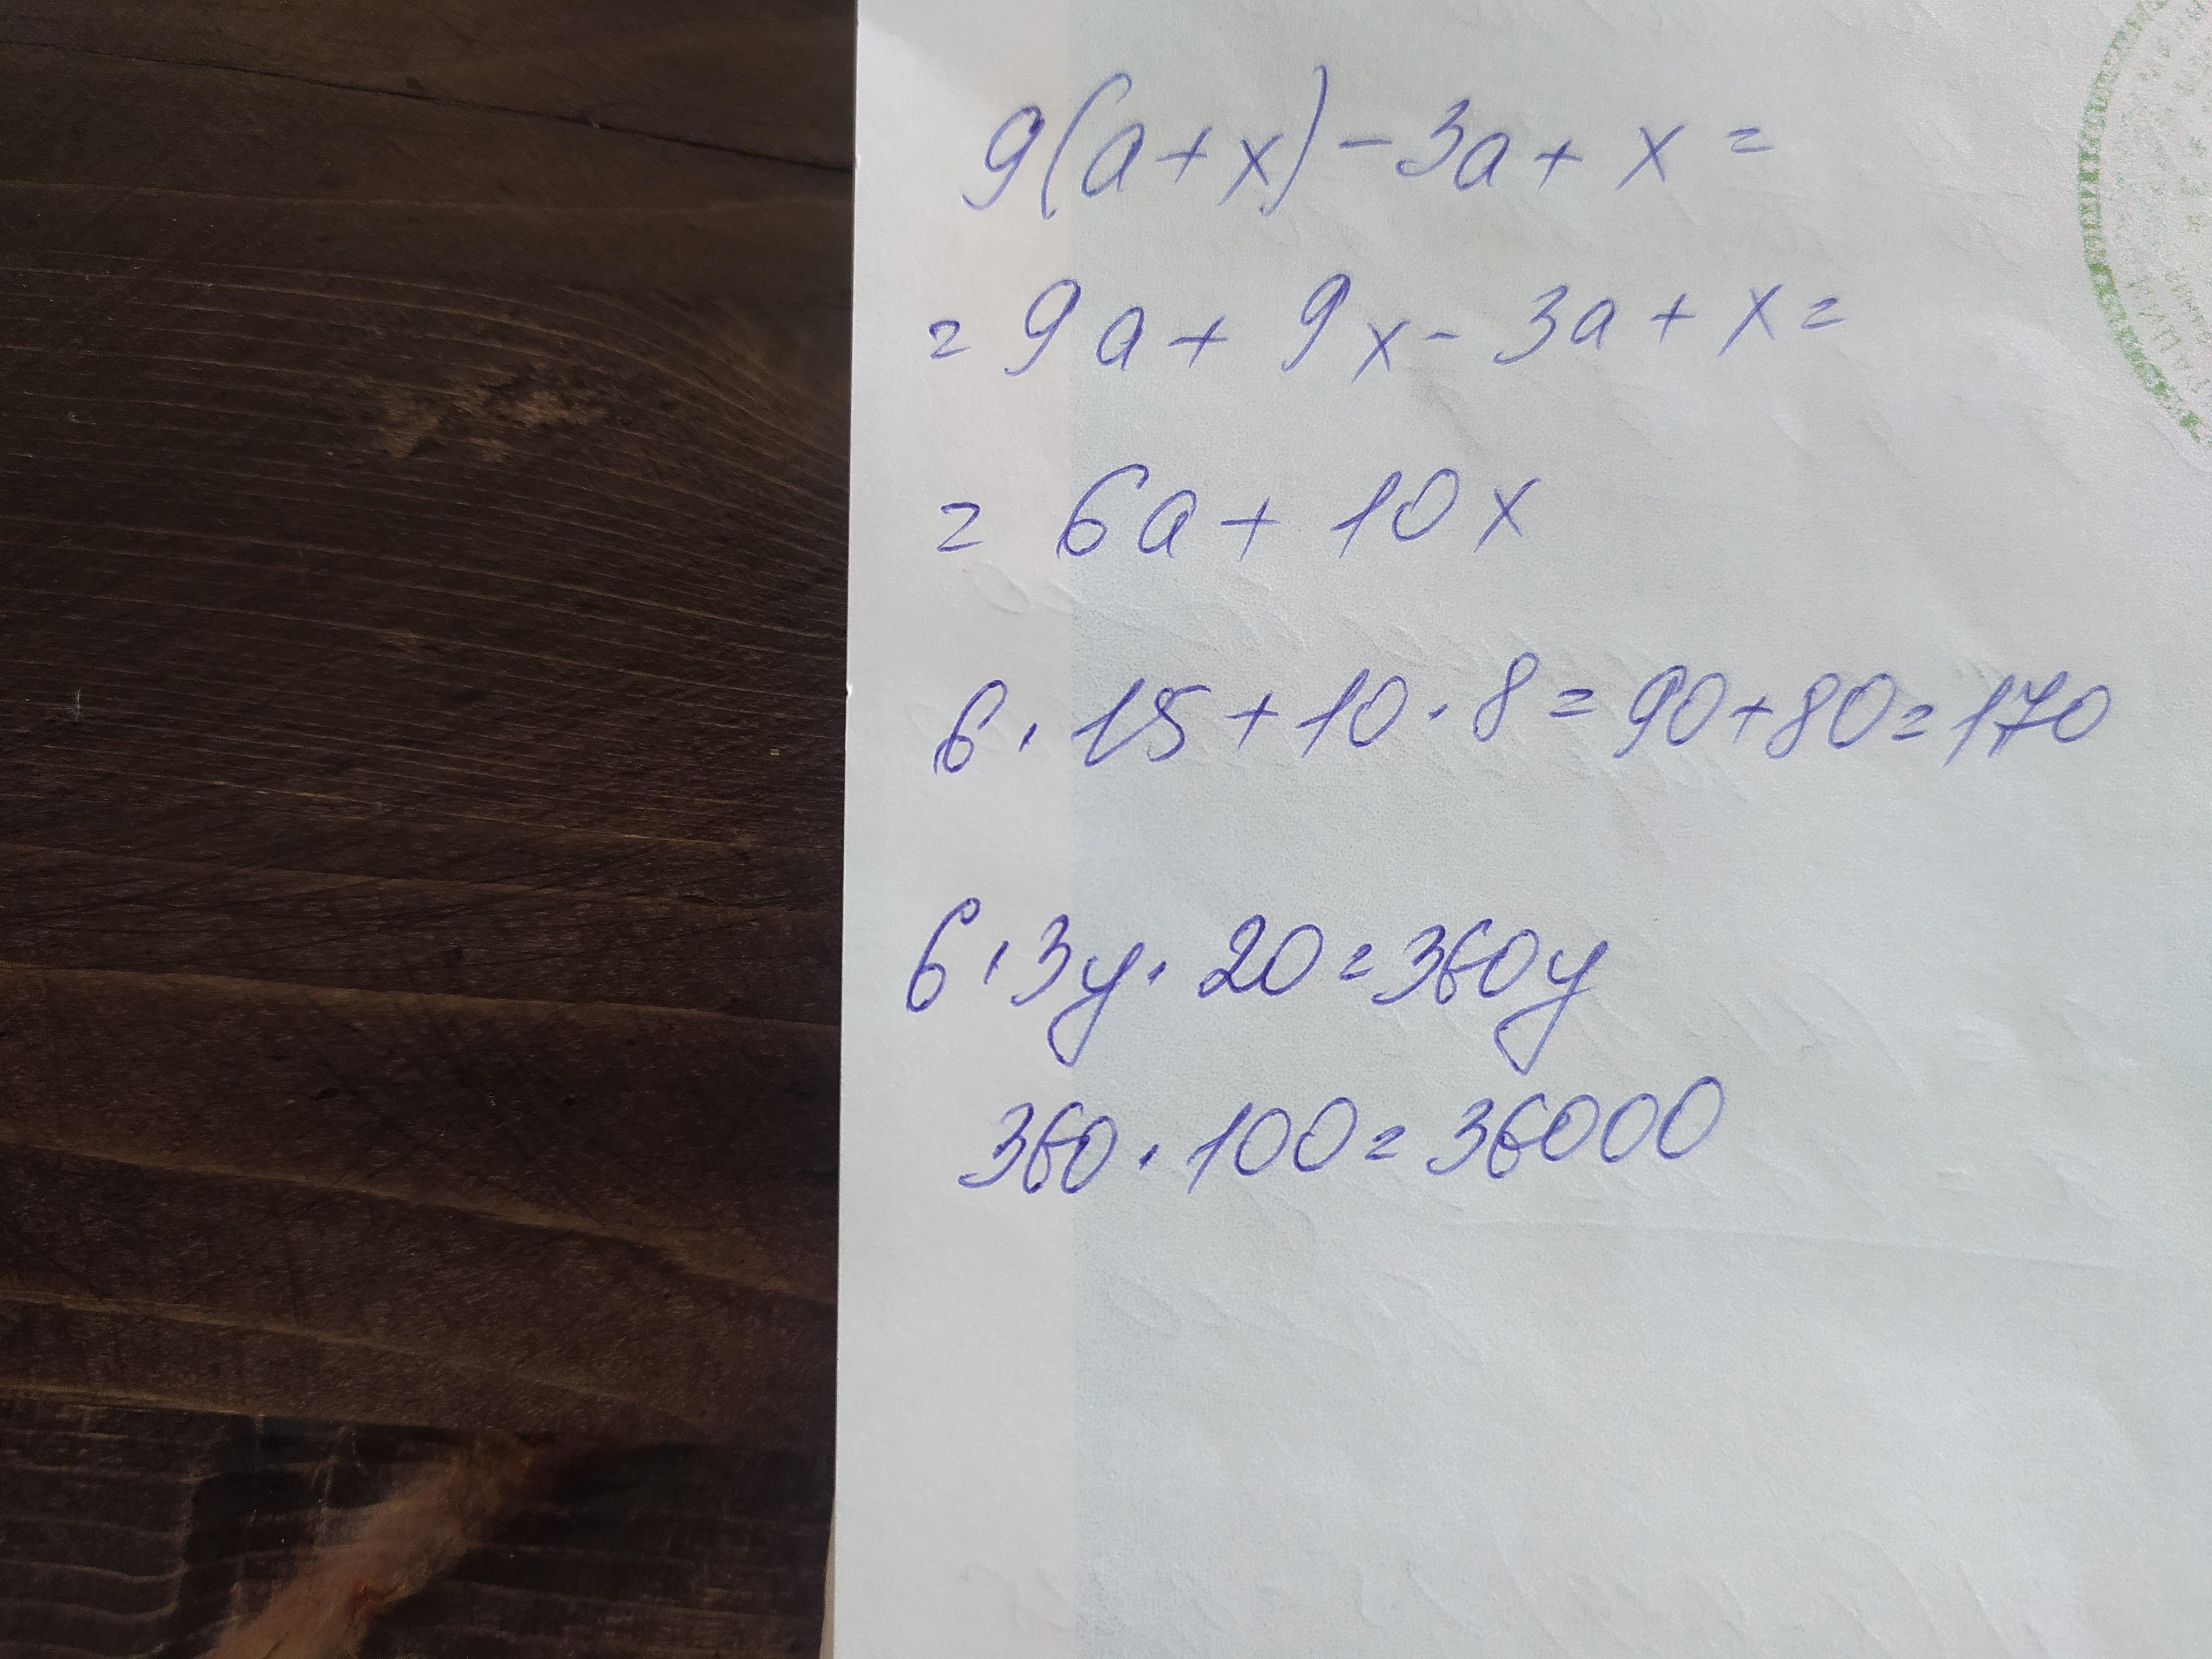 9(a+x)-3a+x=
=9a+9x-3a+x=
=6a+10x
6·15+10·8=90+80=170
6·3y·20=360y
360·100=36000